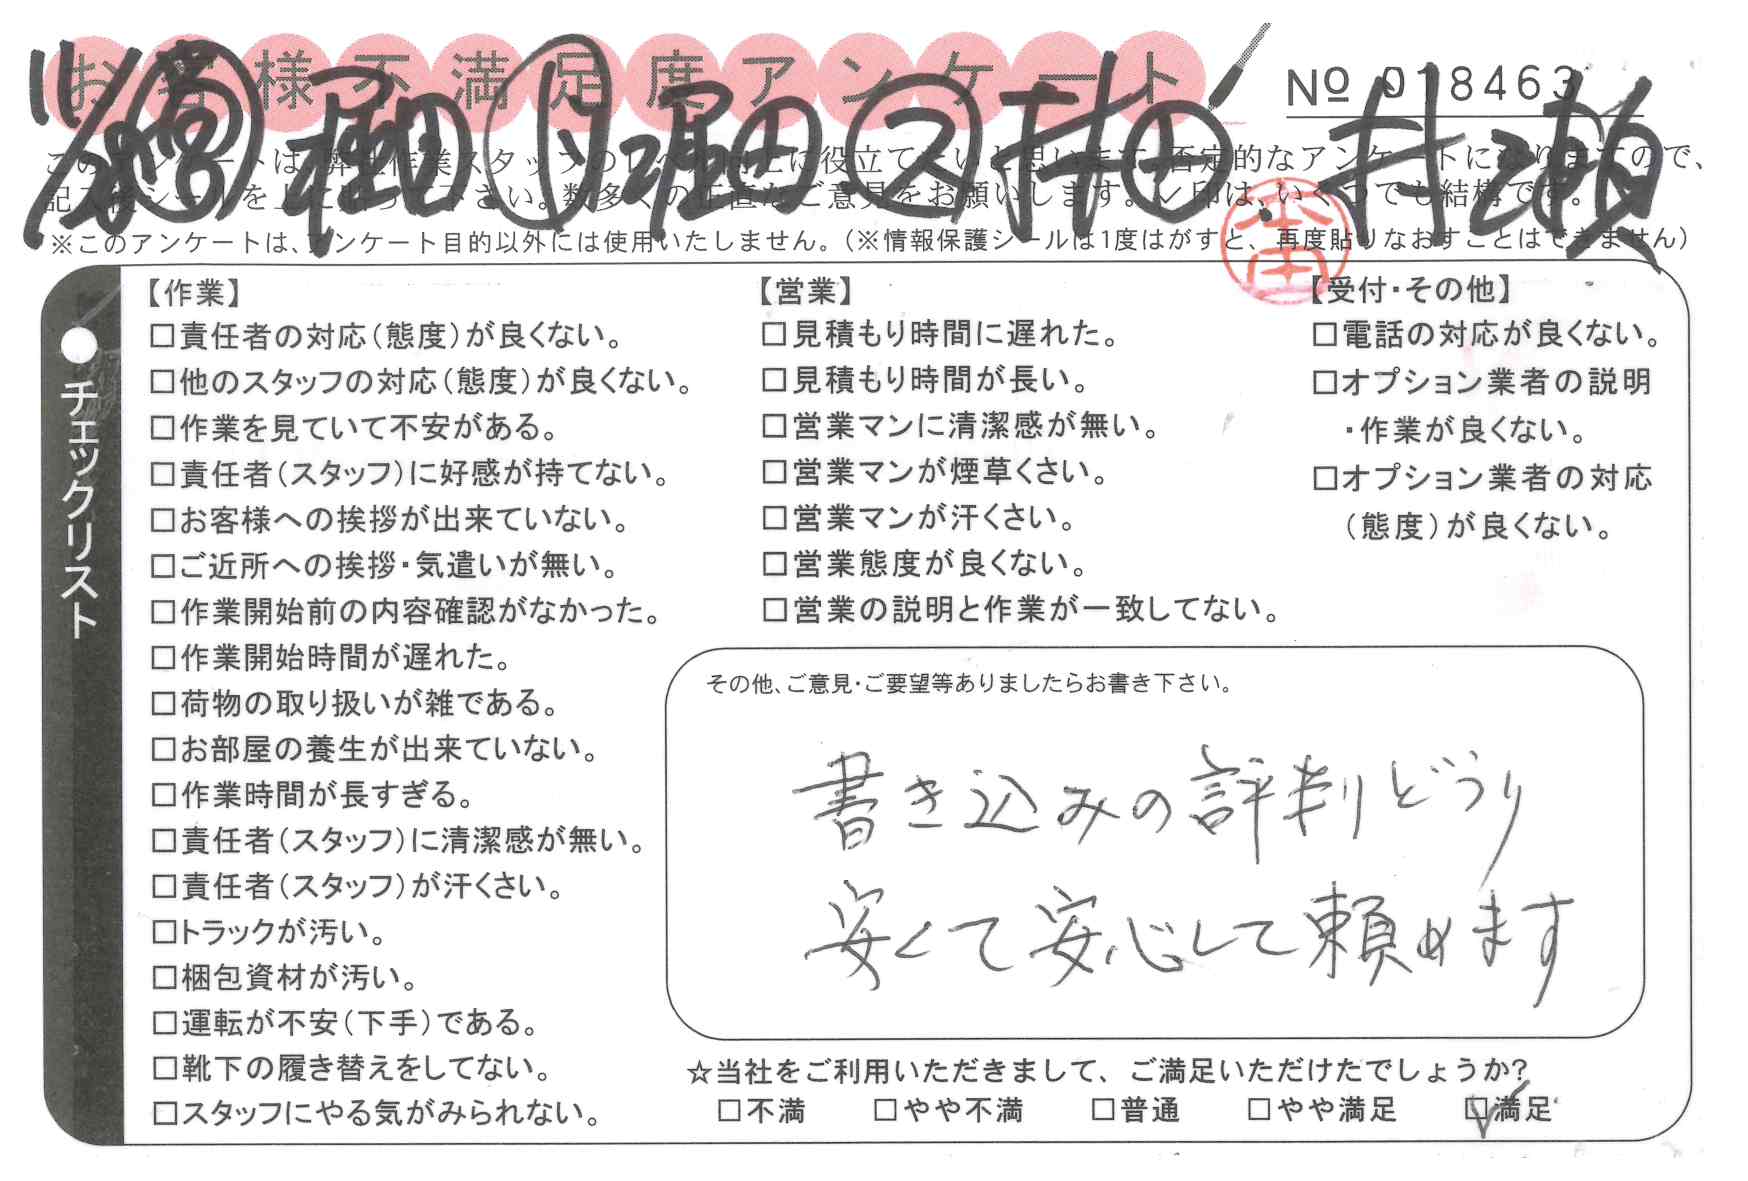 お客様不満足度アンケート
№ 018463
11/ 堀田 月 堀田 ス 村田 村瀬
このアンケートは、弊社作業スタッフのレベル向上に役立てたいと思います。否定的なアンケートになりますので、
記入後シールを上に貼って下さい。数多くの正直なご意見をお願いします。✓印は、いくつでも結構です。
※このアンケートは、アンケート目的以外には使用いたしません。(※情報保護シールは1度はがすと、再度貼りなおすことはできません)
チェックリスト
【作業】
□責任者の対応(態度)が良くない。
□他のスタッフの対応(態度)が良くない。
□作業を見ていて不安がある。
□責任者(スタッフ)に好感が持てない。
□お客様への挨拶が出来ていない。
□ご近所への挨拶・気遣いが無い。
□作業開始前の内容確認がなかった。
□作業開始時間が遅れた。
□荷物の取り扱いが雑である。
□お部屋の養生が出来ていない。
□作業時間が長すぎる。
□責任者(スタッフ)に清潔感が無い。
□責任者(スタッフ)が汗くさい。
□トラックが汚い。
□梱包資材が汚い。
□運転が不安(下手)である。
□靴下の履き替えをしてない。
□スタッフにやる気がみられない。
【営業】
□見積もり時間に遅れた。
□見積もり時間が長い。
□営業マンに清潔感が無い。
□営業マンが煙草くさい。
□営業マンが汗くさい。
□営業態度が良くない。
□営業の説明と作業が一致してない。
【受付・その他】
□電話の対応が良くない。
□オプション業者の説明
・作業が良くない。
□オプション業者の対応
(態度)が良くない。
その他、ご意見・ご要望等ありましたらお書き下さい。
書き込みの評判どうり
安くて安心して頼めます
☆当社をご利用いただきまして、ご満足いただけたでしょうか?
□不満 □やや不満 □普通 □やや満足 ☑満足